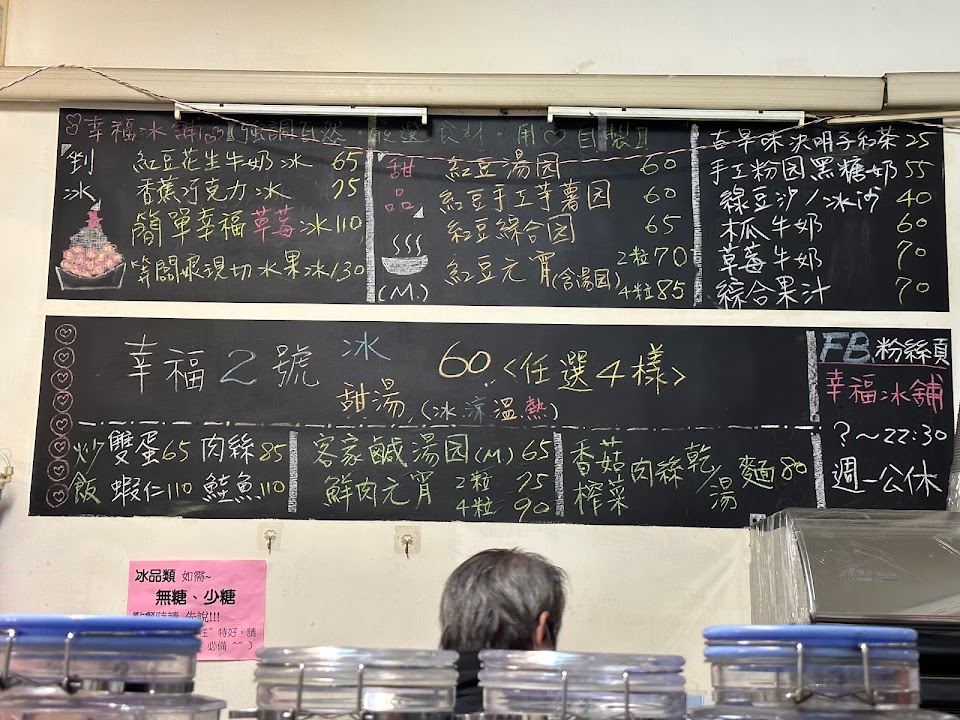 幸福冰舖 強調自然‧嚴選食材‧用♡自製!!
刨冰
紅豆花生牛奶冰 65
香蕉巧克力冰 75
簡單幸福草莓冰 110
等開眼現切水果冰 130
甜品
(M.)
紅豆湯园 60
紅豆手工芋薯园 60
紅豆綜合园 65
紅豆元宵(含湯园) 2粒70
4粒85
古早味決明子紅茶 25
手工粉园黑糖奶 55
綠豆沙/冰沙 40
木瓜牛奶 60
草莓牛奶 70
綜合果汁 70
幸福2號 冰 60.<任選4樣>
甜湯.(冰.涼.溫.熱)
炒飯
雙蛋65 肉絲85
蝦仁110 鮭魚110
客家鹹湯园(M) 65
鮮肉元宵 2粒 75
4粒 90
香菇
榨菜
肉絲乾/湯麵80
FB.粉絲頁
幸福冰舖
?~22:30
週一公休
冰品類 如需~
無糖、少糖
點餐時請 先說!!!
特好,請
必備 ^^